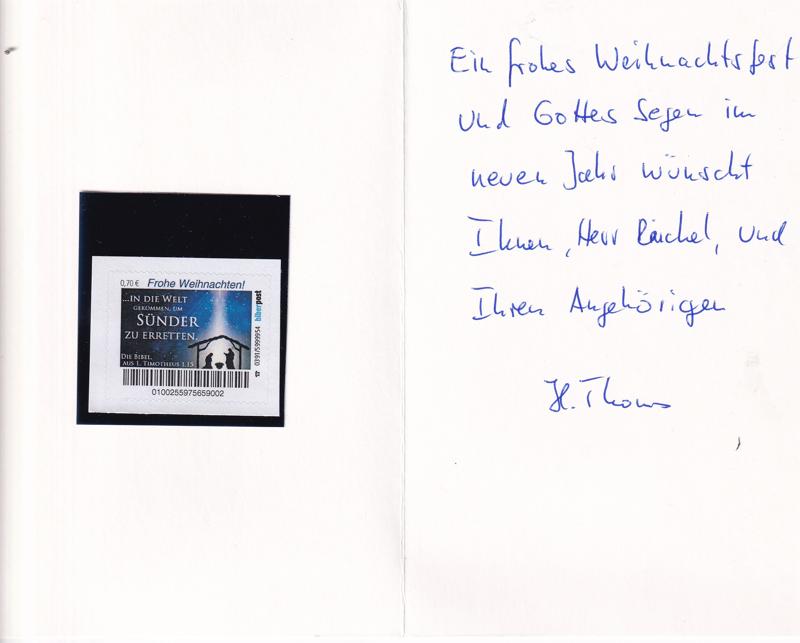 0,70 € Frohe Weihnachten!
...IN DIE WELT
GEKOMMEN, UM
SÜNDER
ZU ERRETTEN.
DIE BIBEL,
AUS 1. TIMOTHEUS 1,15
biberpost
☎ 0391/5999954
0100255975659002
Ein frohes Weihnachtsfest
und Gottes Segen im
neuen Jahr wünscht
Ihnen, Herr, und
Ihren Angehörigen
H. Thoms